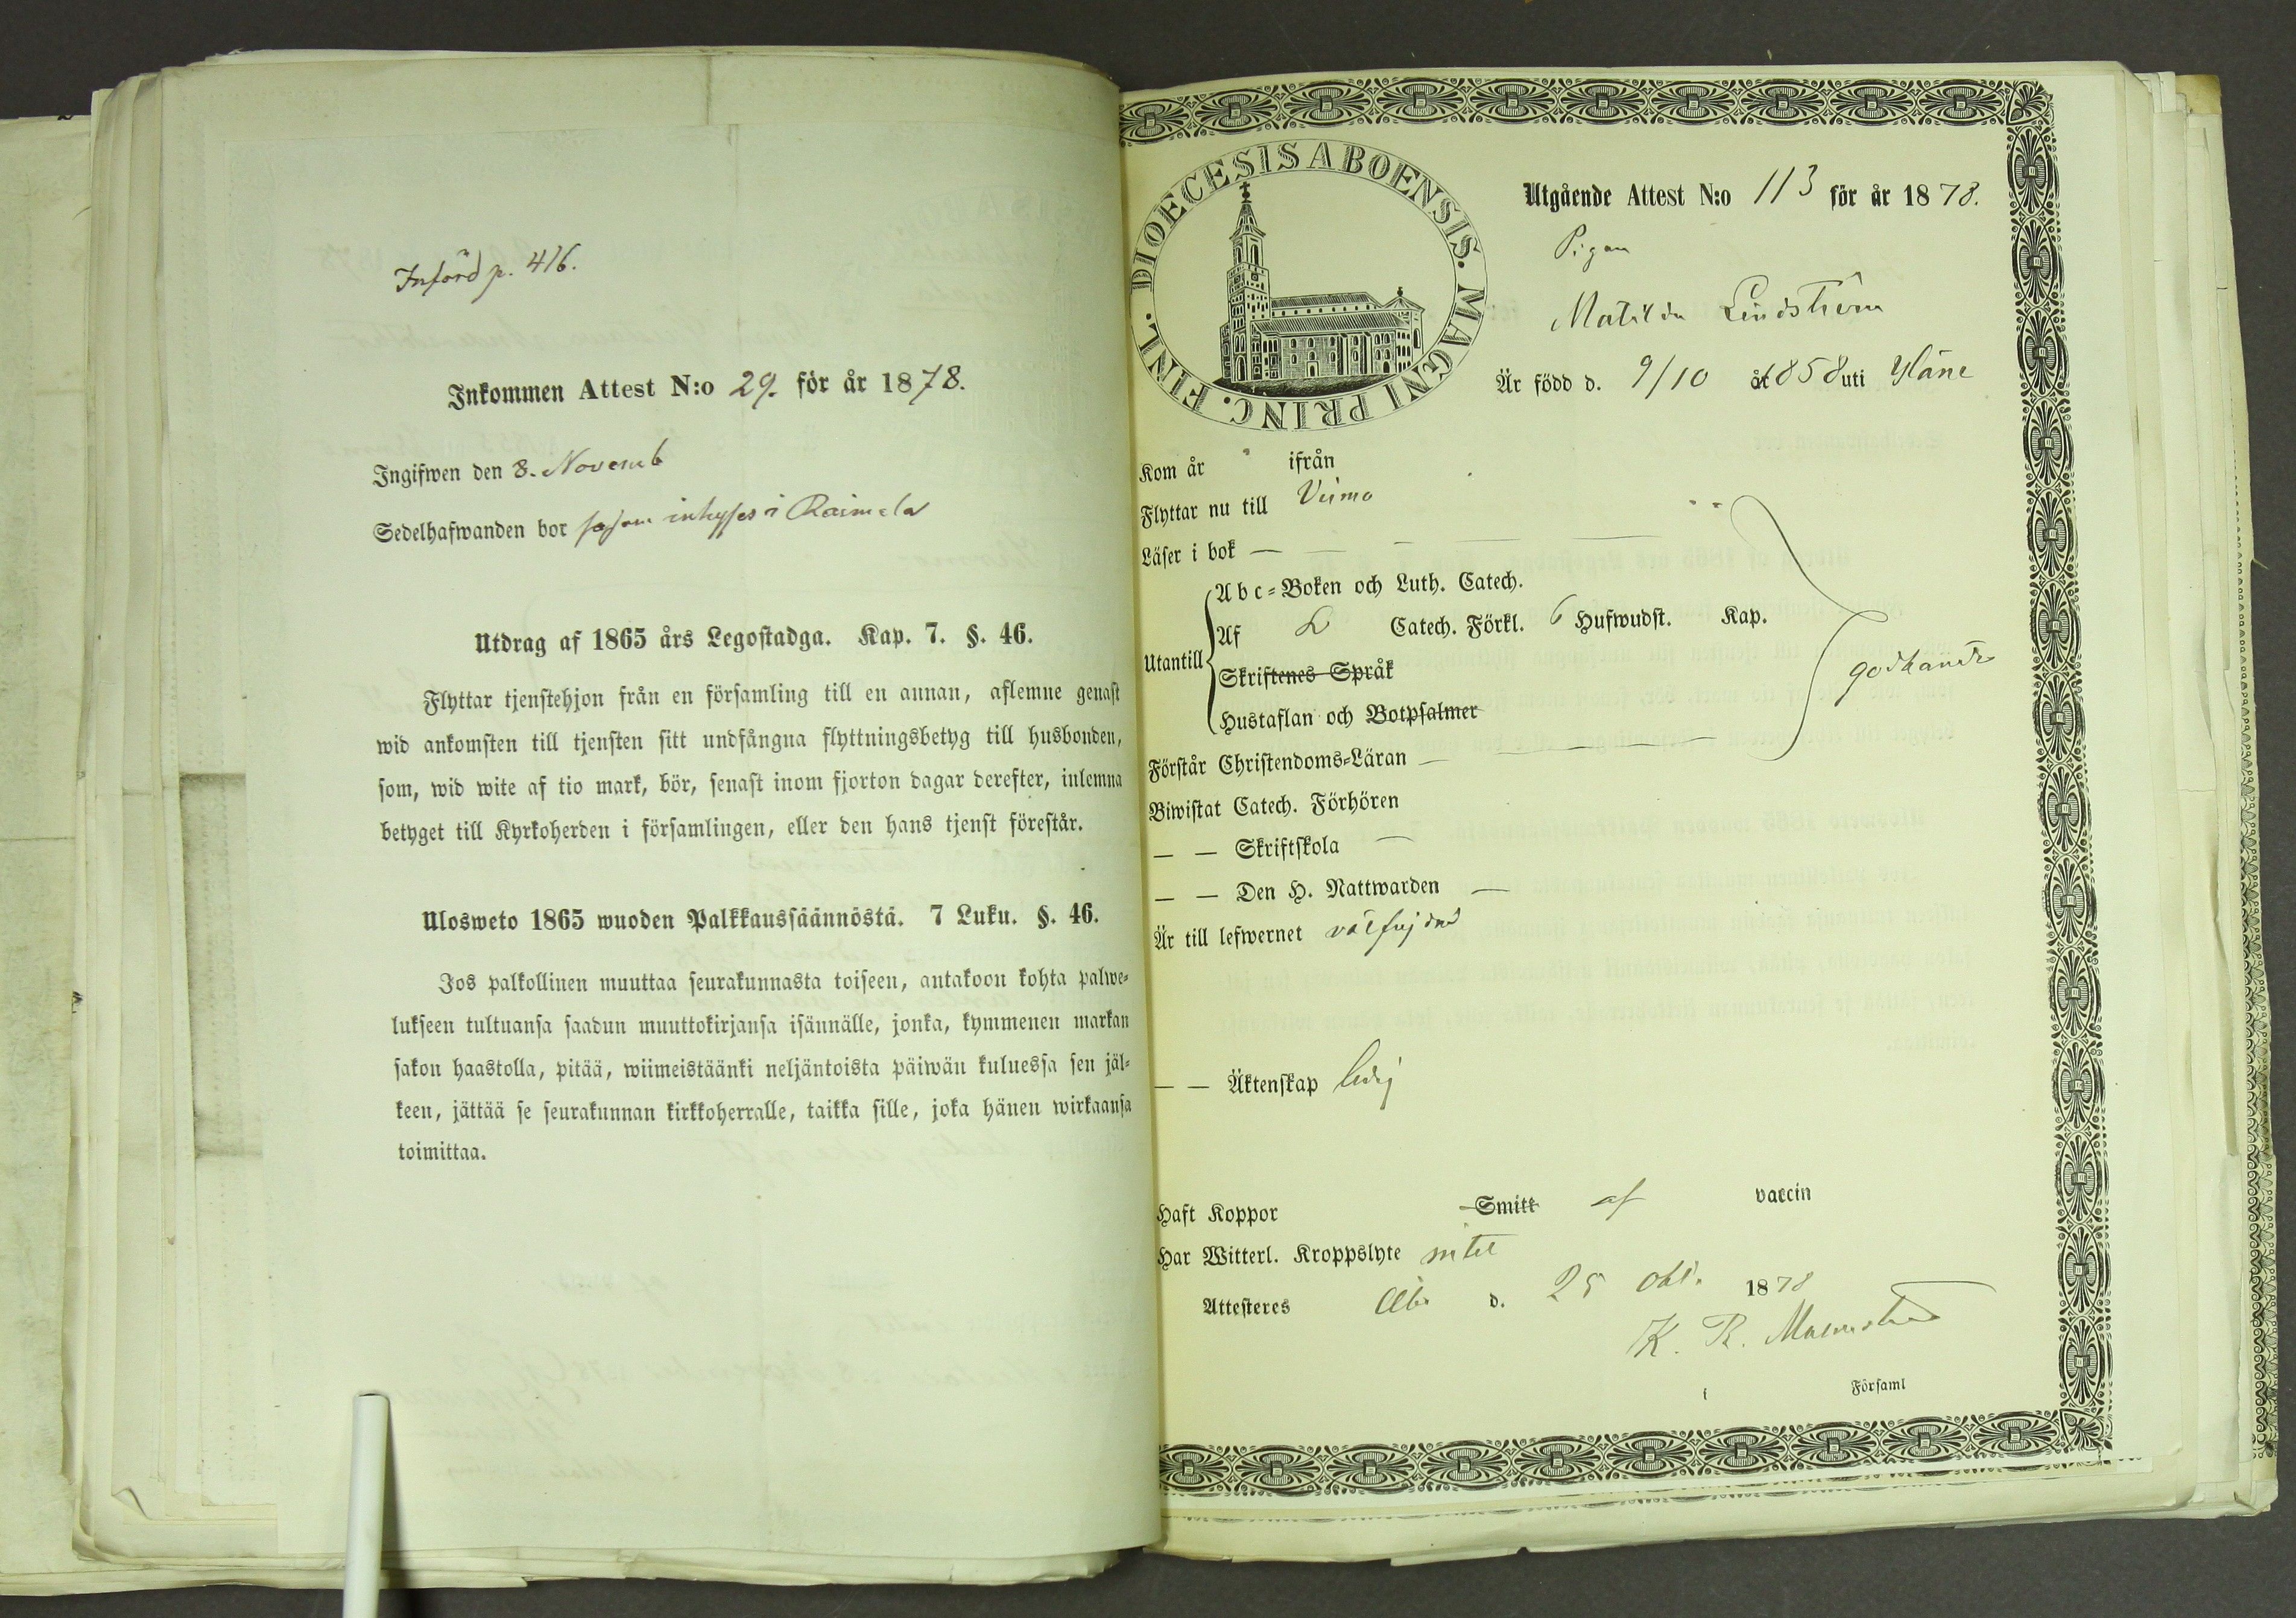 Införd p. 416.
Inkommen Attest N:o 29. för år 1878.
Ingifwen den 8. Novemb
Sedelhafwanden bor såsom inhyses i Raimela
Utdrag af 1865 års Legostadga. Kap. 7. §. 46.
Flyttar tjenstehjon från en församling till en annan, aflemne genast
wid ankomsten till tjensten sitt undfångna flyttningsbetyg till husbonden,
som, wid wite af tio mark, bör, senast inom fjorton dagar derefter, inlemna
betyget till Kyrkoherden i församlingen, eller den hans tjenst förestår.
Ulosweto 1865 wuoden Palkkaussäännöstä. 7 Luku. §. 46.
Jos palkollinen muuttaa seurakunnasta toiseen, antakoon kohta palwe-
lukseen tultuansa saadun muuttokirjansa isännälle, jonka, kymmenen markan
sakon haastolla, pitää, wiimeistäänki neljäntoista päiwän kuluessa sen jäl-
keen, jättää se seurakunnan kirkkoherralle, taikka sille, joka hänen wirkaansa
toimittaa.
DIOECESIS ABOENSIS. MAGNI PRINC. FINL.
Utgående Attest N:o 113 för år 1878.
Pigan
Matilda Lindström
Är född d. 9/10 år 1858 uti Yläne
Kom år ifrån
Flyttar nu till Vemo
Läser i bok —
Abc-Boken och Luth. Catech.
Af L Catech. Förkl. 6 Hufwudst. Kap.
Utantill
Skriftenes Språk
Hustaflan och Botpsalmer
godkändt
Förstår Christendoms-Läran —
Biwistat Catech. Förhören
— — Skriftskola —
— — Den H. Nattwarden —
Är till lefwernet välfrejdad
— — Äktenskap ledig
Haft Koppor Smitt af vaccin
Har Witterl. Kroppslyte intet
Attesteres Åbo d. 25 Okt. 1878
K. R. Malmstedt
i Församl